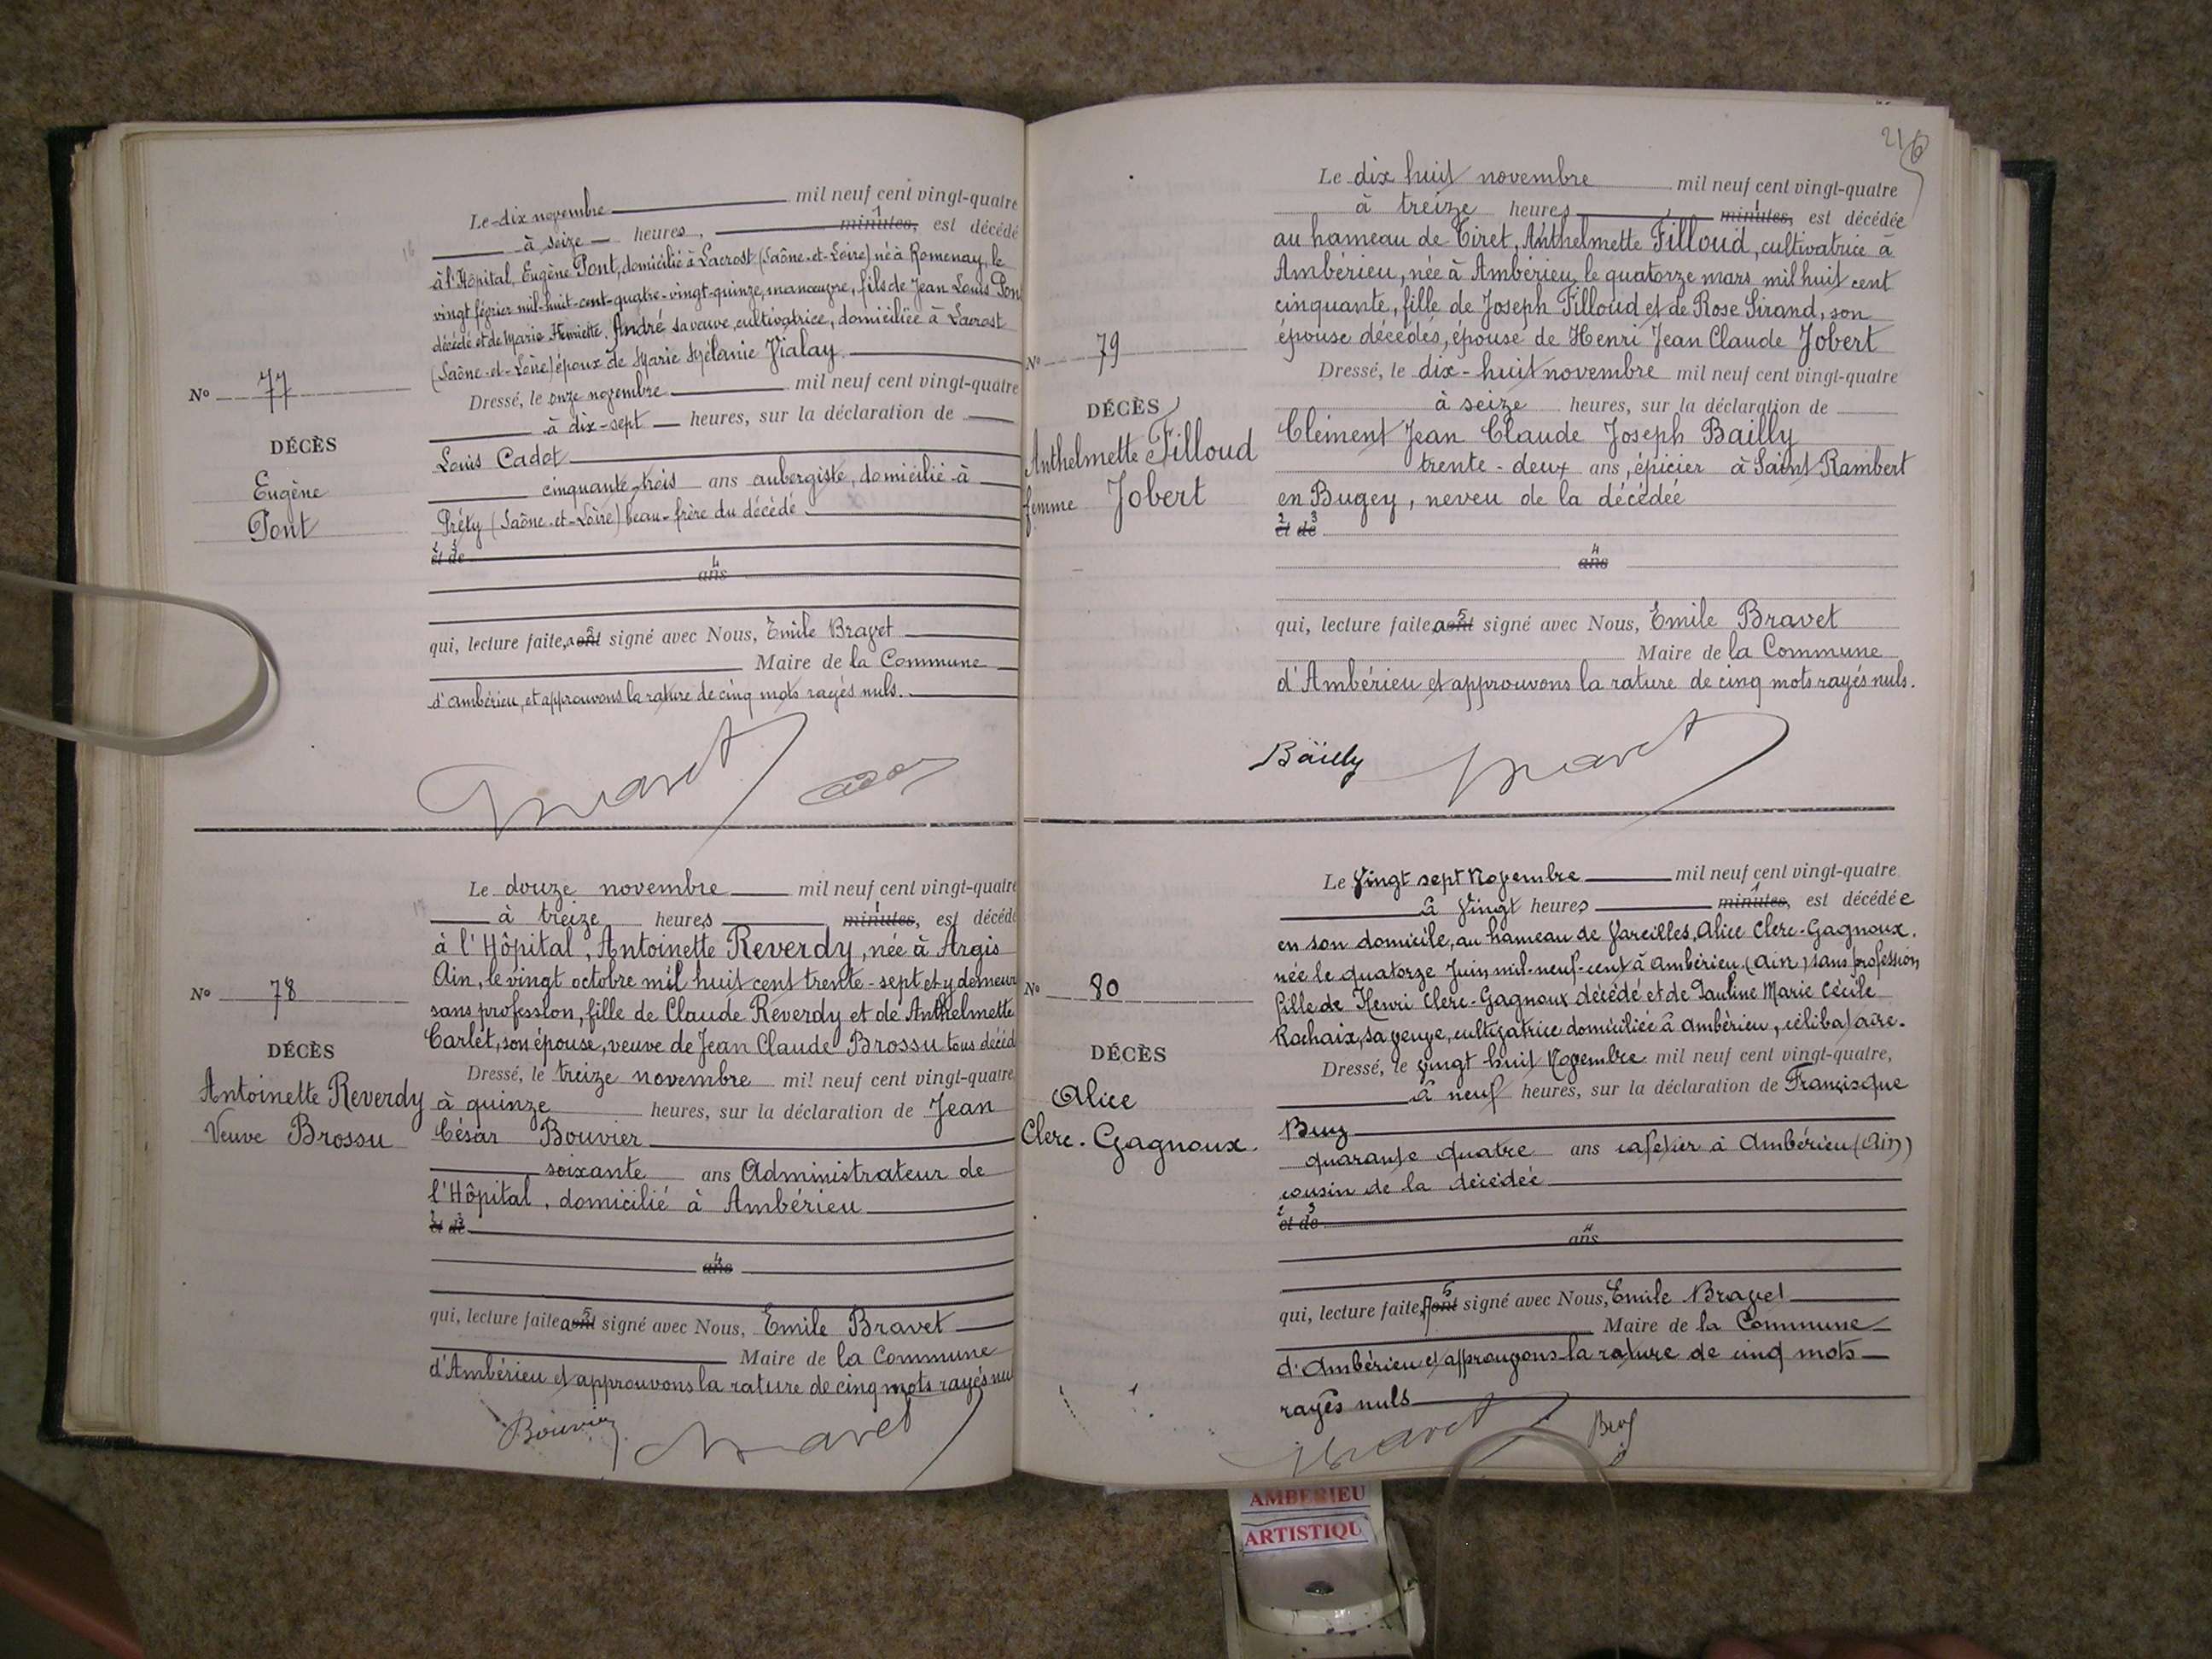 Le dix novembre mil neuf cent vingt-quatre
à seize heures, 1 minutes, est décédé
à l'Hôpital, Eugène Pont, domicilié à Lacrost (Saône-et-Loire) né à Romenay, le
vingt février mil-huit-cent-quatre-vingt-quinze, manœuvre, fils de Jean Louis Pont
décédé et de Marie Henriette André sa veuve, cultivatrice, domiciliée à Lacrost
(Saône-et-Loire) époux de Marie Mélanie Vialay.
Nº 77
Dressé, le onze novembre mil neuf cent vingt-quatre
à dix-sept heures, sur la déclaration de
DÉCÈS
Louis Cadot
Eugène
cinquante-trois ans aubergiste, domicilié à
Pont
Préty (Saône-et-Loire) beau-frère du décédé
2 3
et de
4
ans
qui, lecture faite, a 5 ont signé avec Nous, Emile Bravet
Maire de la Commune
d'Ambérieu, et approuvons la rature de cinq mots rayés nuls.
Bravet
Le douze novembre mil neuf cent vingt-quatre
à treize heures 1 minutes, est décédé
à l'Hôpital, Antoinette Reverdy, née à Argis
Ain, le vingt octobre mil huit cent trente-sept et y demeur
Nº 78
sans profession, fille de Claude Reverdy et de Anthelmette
Carlet, son épouse, veuve de Jean Claude Brossu tous décéd
DÉCÈS
Dressé, le treize novembre mil neuf cent vingt-quatre
Antoinette Reverdy
à quinze heures, sur la déclaration de Jean
Veuve Brossu
César Bouvier
soixante ans Administrateur de
l'Hôpital, domicilié à Ambérieu
2 3
et de
4
ans
qui, lecture faite a 5 ont signé avec Nous, Emile Bravet
Maire de la Commune
d'Ambérieu et approuvons la rature de cinq mots rayés nul
Bouvier Bravet
216
Le dix huit novembre mil neuf cent vingt-quatre
à treize heures 1 minutes, est décédée
au hameau de Tiret, Anthelmette Filloud, cultivatrice à
Ambérieu, née à Ambérieu, le quatorze mars mil huit cent
cinquante, fille de Joseph Filloud et de Rose Sirand, son
Nº 79
épouse décédés, épouse de Henri Jean Claude Jobert
Dressé, le dix-huit novembre mil neuf cent vingt-quatre
DÉCÈS
à seize heures, sur la déclaration de
Anthelmette Filloud
Clément Jean Claude Joseph Bailly
trente-deux ans, épicier à Saint Rambert
femme Jobert
en Bugey, neveu de la décédée
2 3
et de
4
ans
qui, lecture faite, a 5 ont signé avec Nous, Emile Bravet
Maire de la Commune
d'Ambérieu et approuvons la rature de cinq mots rayés nuls.
Bailly Bravet
Le Vingt sept Novembre mil neuf cent vingt-quatre
à Vingt heures 1 minutes, est décédée
en son domicile, au hameau de Vareilles, Alice Clerc-Gagnoux,
née le quatorze Juin mil-neuf-cent à Ambérieu (Ain) sans profession
Nº 80
fille de Henri Clerc-Gagnoux décédé et de Pauline Marie Cécile
Rochaix, sa veuve, cultivatrice domiciliée à Ambérieu, célibataire.
DÉCÈS
Dressé, le vingt huit Novembre mil neuf cent vingt-quatre,
Alice
à neuf heures, sur la déclaration de Francisque
Clerc-Gagnoux.
quarante quatre ans cafetier à Ambérieu (Ain)
cousin de la décédée
2 3
et de
4
ans
qui, lecture faite, 5 ont signé avec Nous, Emile Bravet
Maire de la Commune
d'Ambérieu et approuvons la rature de cinq mots
rayés nuls
Bravet
AMBERIEU
ARTISTIQU